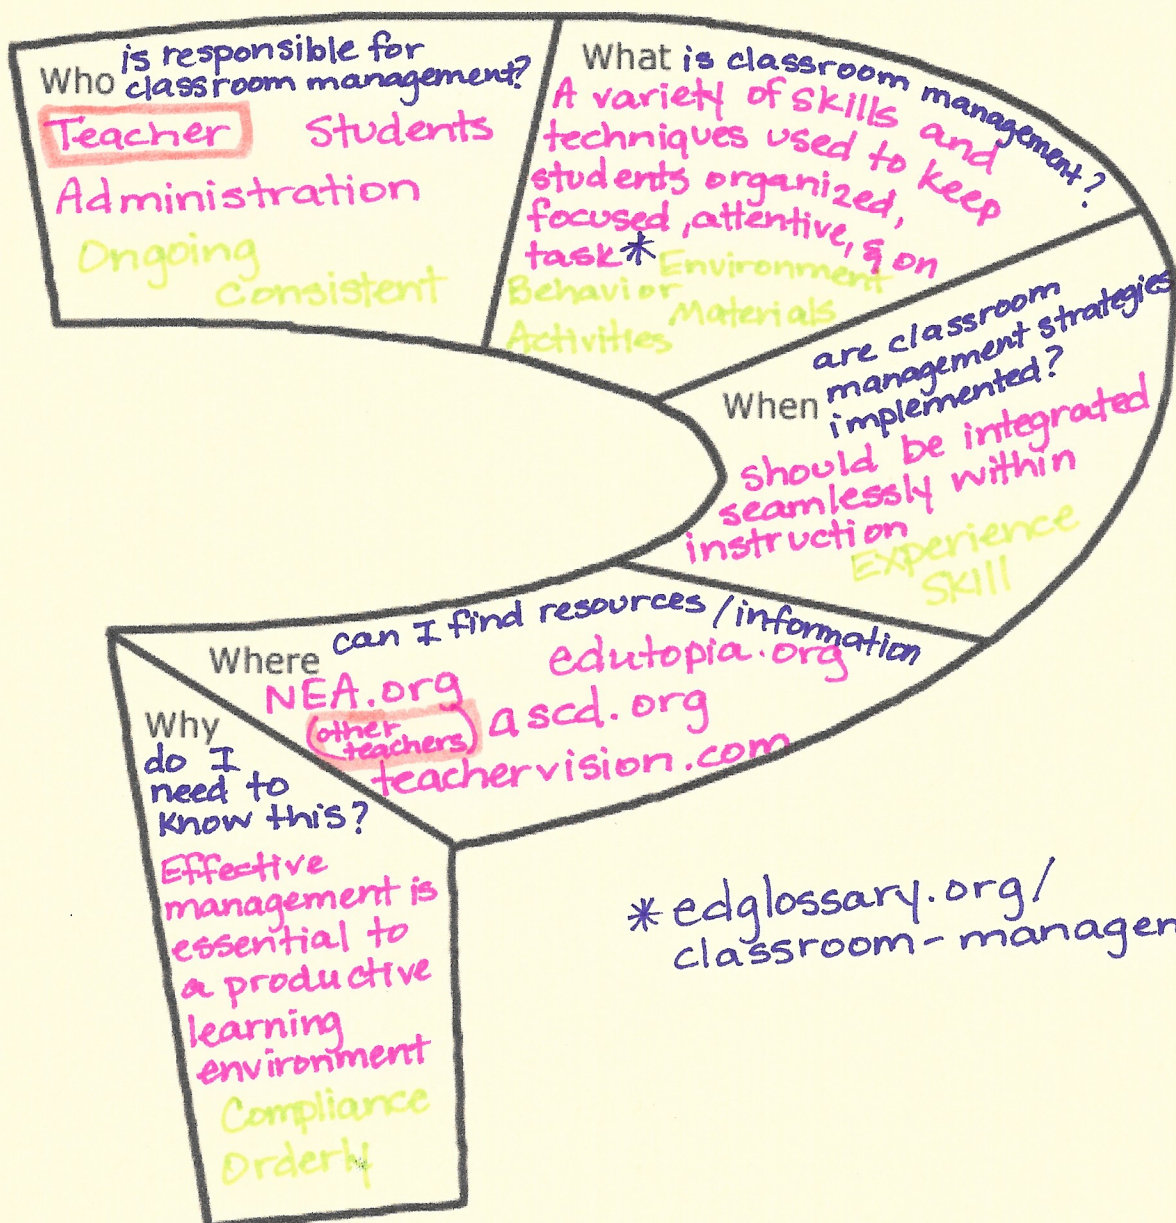 Who is responsible for
classroom management?
Teacher Students
Administration
Ongoing
Consistent
What is classroom management?
A variety of skills and
techniques used to keep
students organized,
focused, attentive, & on
task*
Environment
Behavior
Materials
Activities
When are classroom
management strategies
implemented?
should be integrated
seamlessly within
instruction
Experience
Skill
Where can I find resources/information
edutopia.org
NEA.org
(other
teachers)
ascd.org
teachervision.com
Why
do I
need to
know this?
Effective
management is
essential to
a productive
learning
environment
Compliance
Orderly
* edglossary.org/
classroom-managem